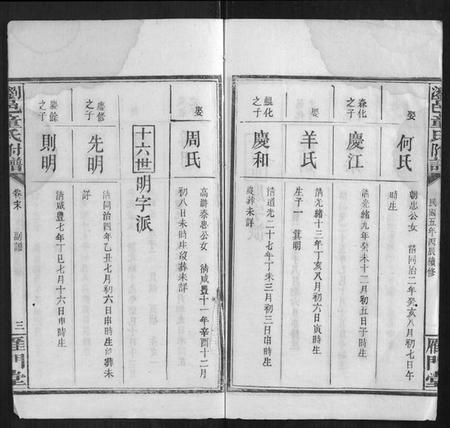 瀏邑童氏附譜
民國五年丙辰續修
雁門堂
娶
何氏
朝忠公女
清同治二年癸亥八月初七日午時生
森化之子
慶江
清光緒九年癸未十二月初五日子時生
娶
羊氏
清光緒十三年丁亥八月初六日寅時生
生子一
其明
慶和
清道光二十七年丁未三月初三日申時生
歿葬未詳
娶
周氏
高爵泰惠公女
清咸豐十一年辛酉十二月初八日未時生歿葬未詳
十六世明字派
慶修之子
先明
清同治四年乙丑七月初六日申時生歿葬未詳
慶餘之子
則明
清咸豐七年丁巳七月十六日申時生
瀏邑童氏附譜
卷末
副譜
三
雁門堂